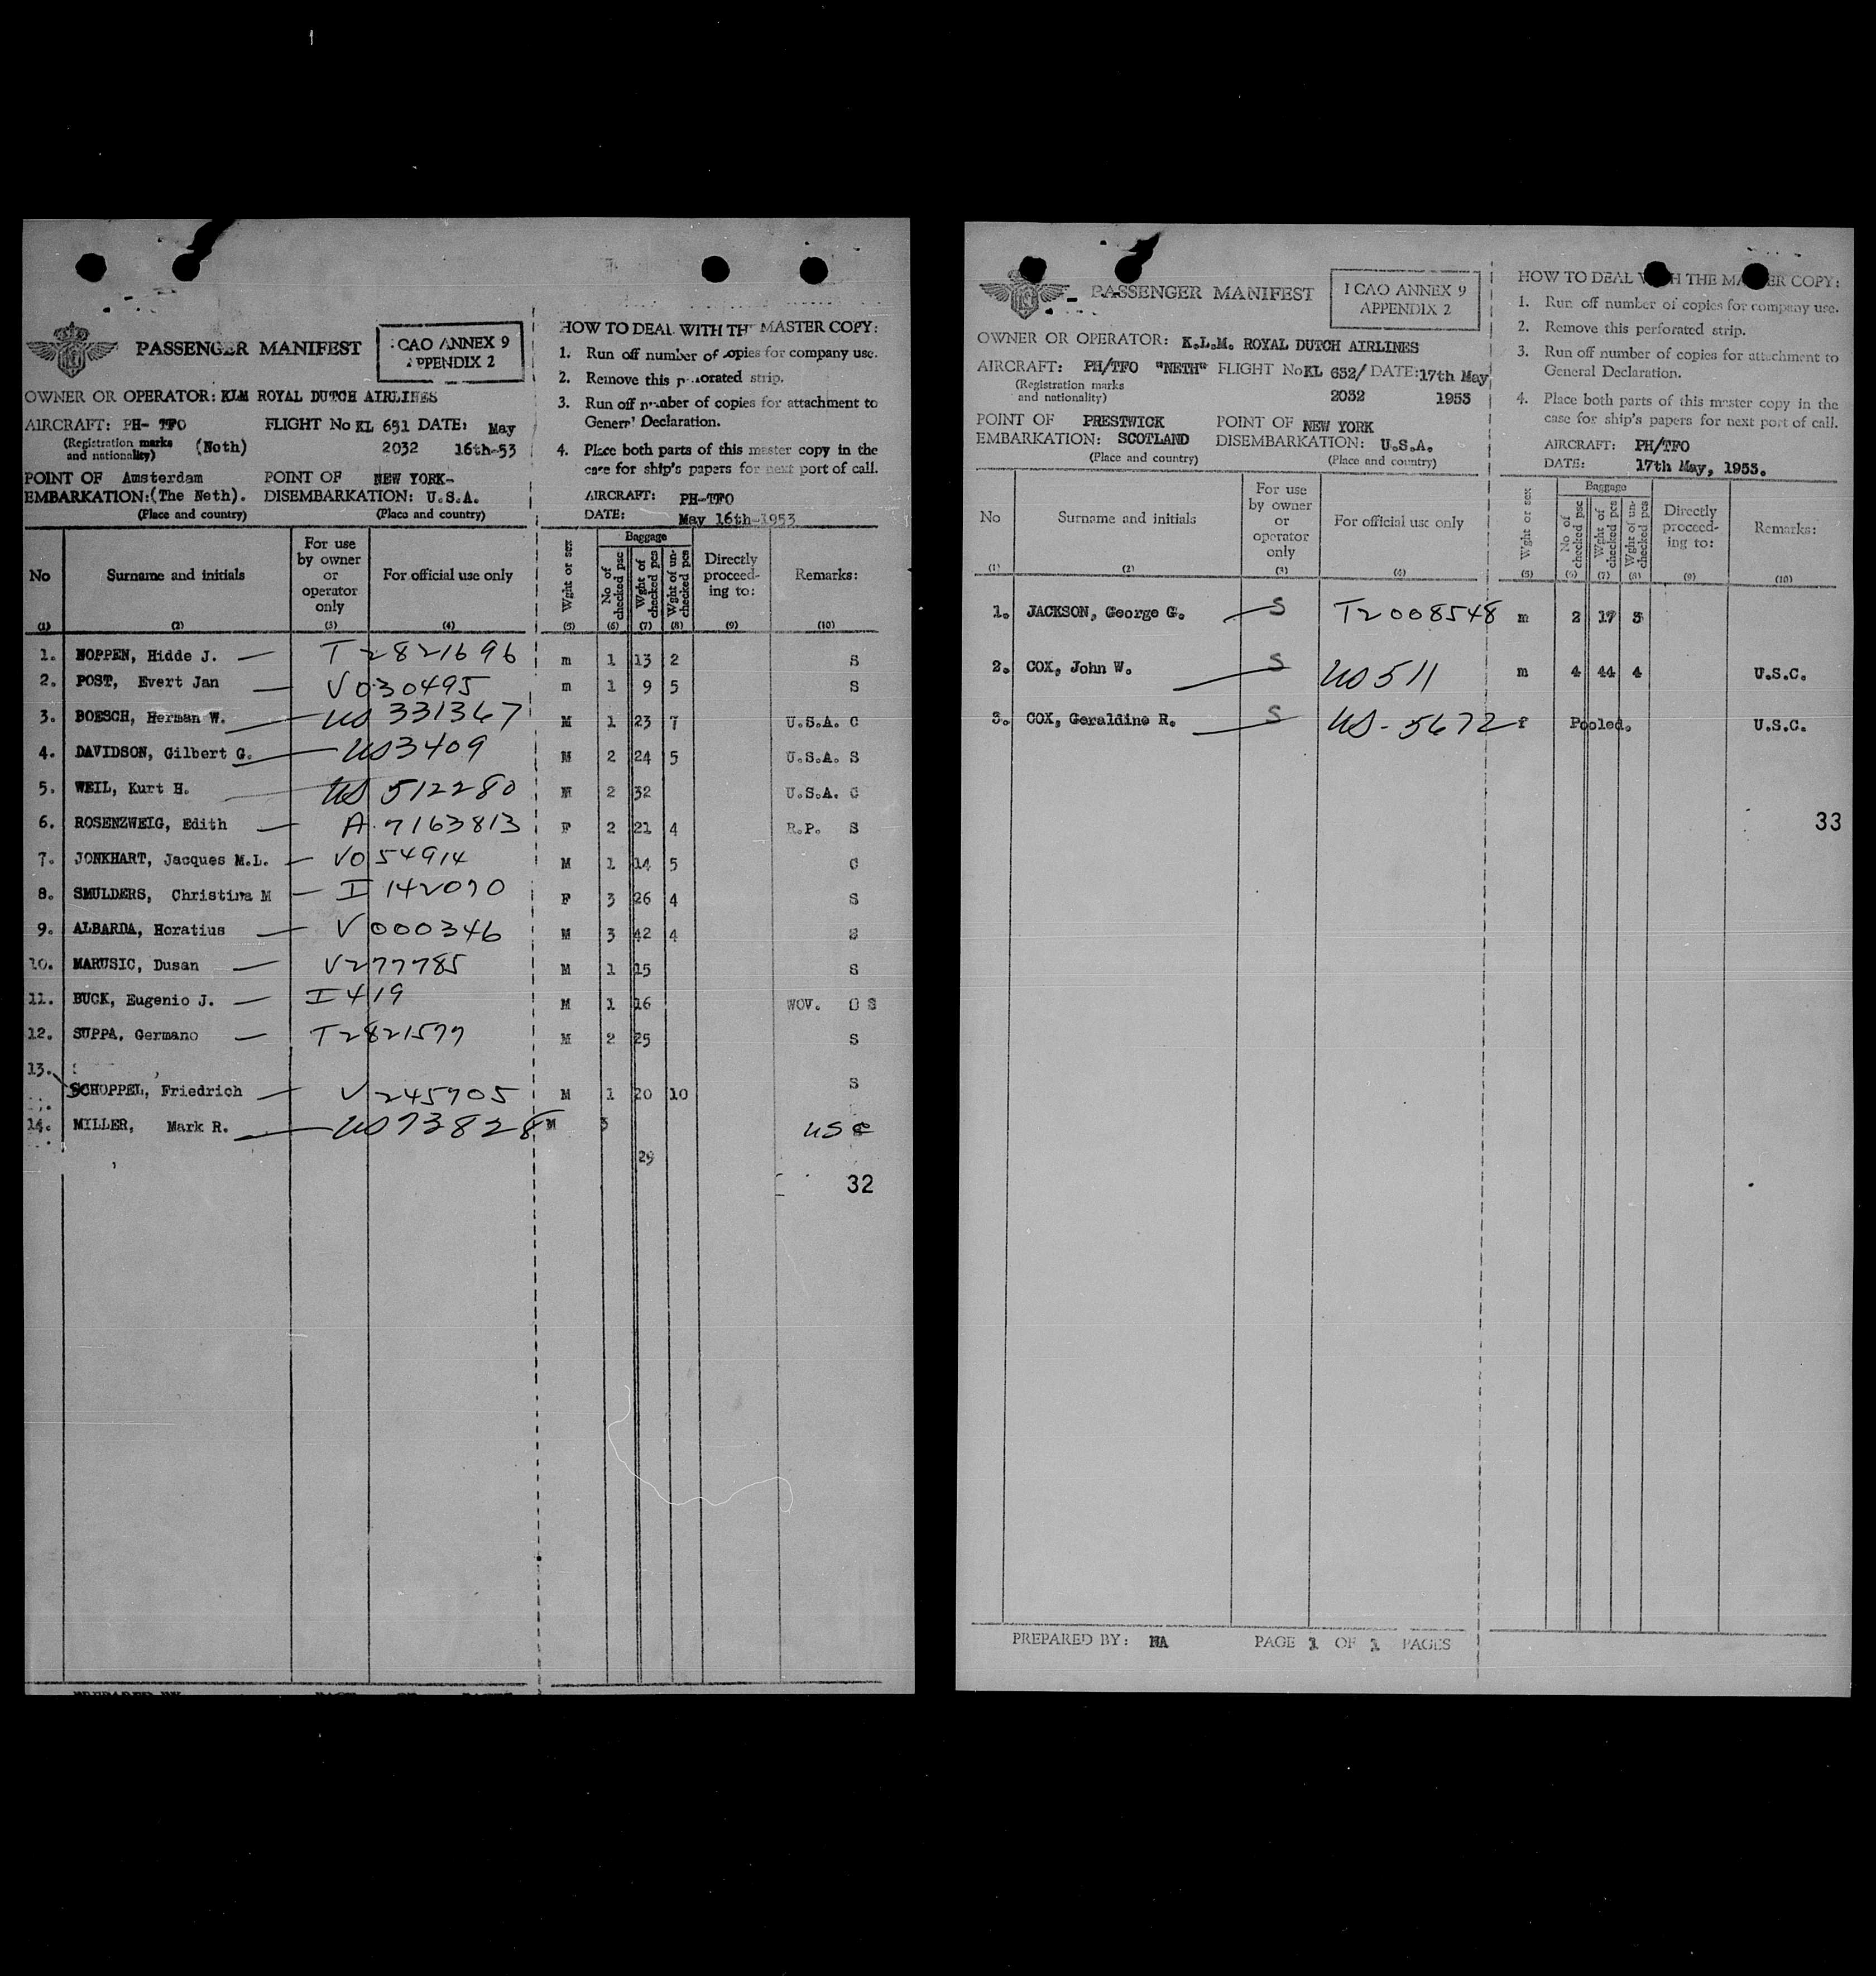 PASSENGER MANIFEST
ICAO ANNEX 9
APPENDIX 2
OWNER OR OPERATOR: KLM ROYAL DUTCH AIRLINES
AIRCRAFT: PH- TFO FLIGHT No KL 651 DATE: May
(Registration marks and nationality) (Neth) 2032 16th-53
POINT OF Amsterdam POINT OF NEW YORK-
EMBARKATION: (The Neth). DISEMBARKATION: U.S.A.
(Place and country) (Place and country)
HOW TO DEAL WITH THE MASTER COPY:
1. Run off number of copies for company use.
2. Remove this perforated strip.
3. Run off number of copies for attachment to
General Declaration.
4. Place both parts of this master copy in the
case for ship's papers for next port of call.
AIRCRAFT: PH-TFO
DATE: May 16th-1953
No Surname and initials For use by owner or operator only For official use only Wght or sex Baggage No of checked psc Wght of checked pcs Wght of un-checked pcs Directly proceed-ing to: Remarks:
(1) (2) (3) (4) (5) (6) (7) (8) (9) (10)
1. NOPPEN, Hidde J. — T2821696 m 1 13 2 S
2. POST, Evert Jan — V030495 m 1 9 5 S
3. BOESCH, Herman W. — US 331367 M 1 23 7 U.S.A. C
4. DAVIDSON, Gilbert G. — US3409 M 2 24 5 U.S.A. S
5. WEIL, Kurt H. — US 512280 M 2 32 U.S.A. C
6. ROSENZWEIG, Edith — A.7163813 F 2 21 4 R.P. S
7. JONKHART, Jacques M.L. — V054914 M 1 14 5 C
8. SMULDERS, Christina M — I 142070 F 3 26 4 S
9. ALBARDA, Horatius — V000346 M 3 42 4 S
10. MARUSIC, Dusan — V277785 M 1 15 S
11. BUCK, Eugenio J. — I419 M 1 16 WOV. O S
12. SUPPA, Germano — T2821577 M 2 25 S
13.
SCHOPPEL, Friedrich — V245705 M 1 20 10 S
14. MILLER, Mark R. — US73828 M 3 USC
29
32
PASSENGER MANIFEST
ICAO ANNEX 9
APPENDIX 2
OWNER OR OPERATOR: K.L.M. ROYAL DUTCH AIRLINES
AIRCRAFT: PH/TFO "NETH" FLIGHT No KL 652/ DATE: 17th May
(Registration marks and nationality) 2032 1953
POINT OF PRESTWICK POINT OF NEW YORK
EMBARKATION: SCOTLAND DISEMBARKATION: U.S.A.
(Place and country) (Place and country)
HOW TO DEAL WITH THE MASTER COPY:
1. Run off number of copies for company use.
2. Remove this perforated strip.
3. Run off number of copies for attachment to
General Declaration.
4. Place both parts of this master copy in the
case for ship's papers for next port of call.
AIRCRAFT: PH/TFO
DATE: 17th May, 1953.
No Surname and initials For use by owner or operator only For official use only Wght or sex Baggage No of checked psc Wght of checked pcs Wght of un-checked pcs Directly proceed-ing to: Remarks:
(1) (2) (3) (4) (5) (6) (7) (8) (9) (10)
1. JACKSON, George G. — S T2008548 m 2 17 3
2. COX, John W. — S US511 m 4 44 4 U.S.C.
3. COX, Geraldine R. — S US-5672 f Pooled. U.S.C.
33
PREPARED BY: NA PAGE 1 OF 1 PAGES